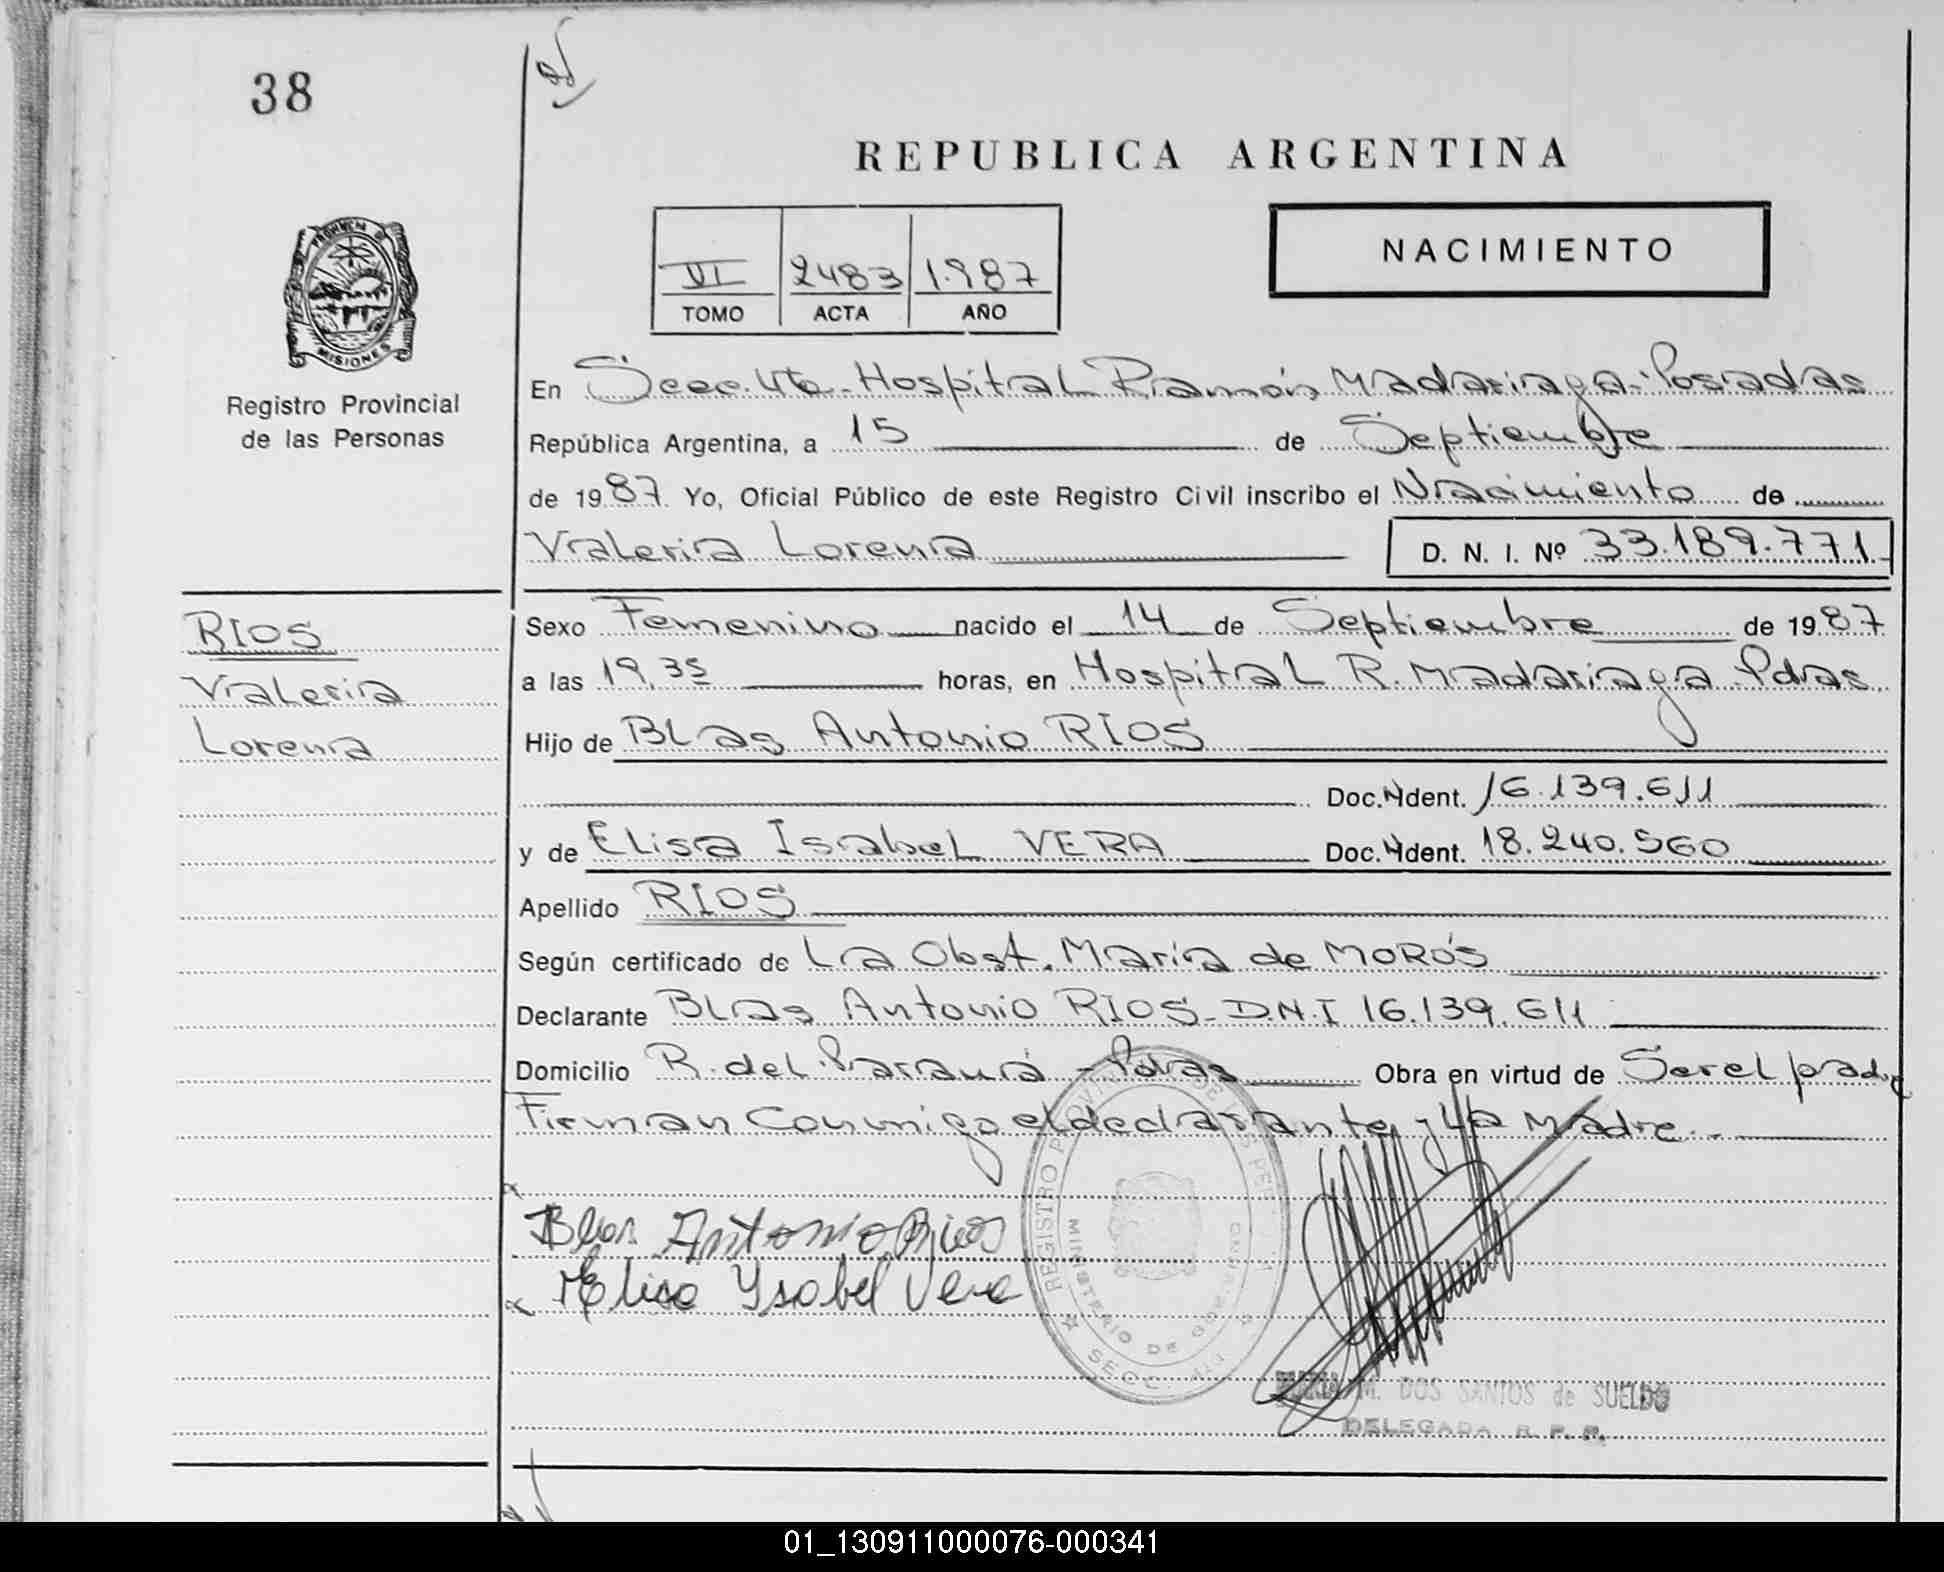 38
REPUBLICA ARGENTINA
PROVINCIA DE
MISIONES
Registro Provincial
de las Personas
VI 2483 1.987
TOMO ACTA AÑO
NACIMIENTO
En Secc. 4ta. Hospital Ramón Madariaga. Posadas
República Argentina, a 15 de Septiembre
de 1987. Yo, Oficial Público de este Registro Civil inscribo el Nacimiento de
Valeria Lorena D. N. I. Nº 33.189.771.
RIOS
Valeria
Lorena
Sexo Femenino nacido el 14 de Septiembre de 1987
a las 19,35 horas, en Hospital R. Madariaga Pdas
Hijo de Blas Antonio RIOS
Doc. Ident. 16.139.611
y de Elisa Isabel VERA Doc. Ident. 18.240.560
Apellido RIOS
Según certificado de La Obst. María de MORÓS
Declarante Blas Antonio RIOS - D.N.I 16.139.611
Domicilio R. del Paraná - Pdas Obra en virtud de Ser el padre
Firman Conmigo el declarante y La Madre.
Blas Antonio Rios
Elisa Ysabel Vera
REGISTRO
MINISTERIO DE
SECC.
M. DOS SANTOS de SUELDO
DELEGADA R. P. P.
01_130911000076-000341